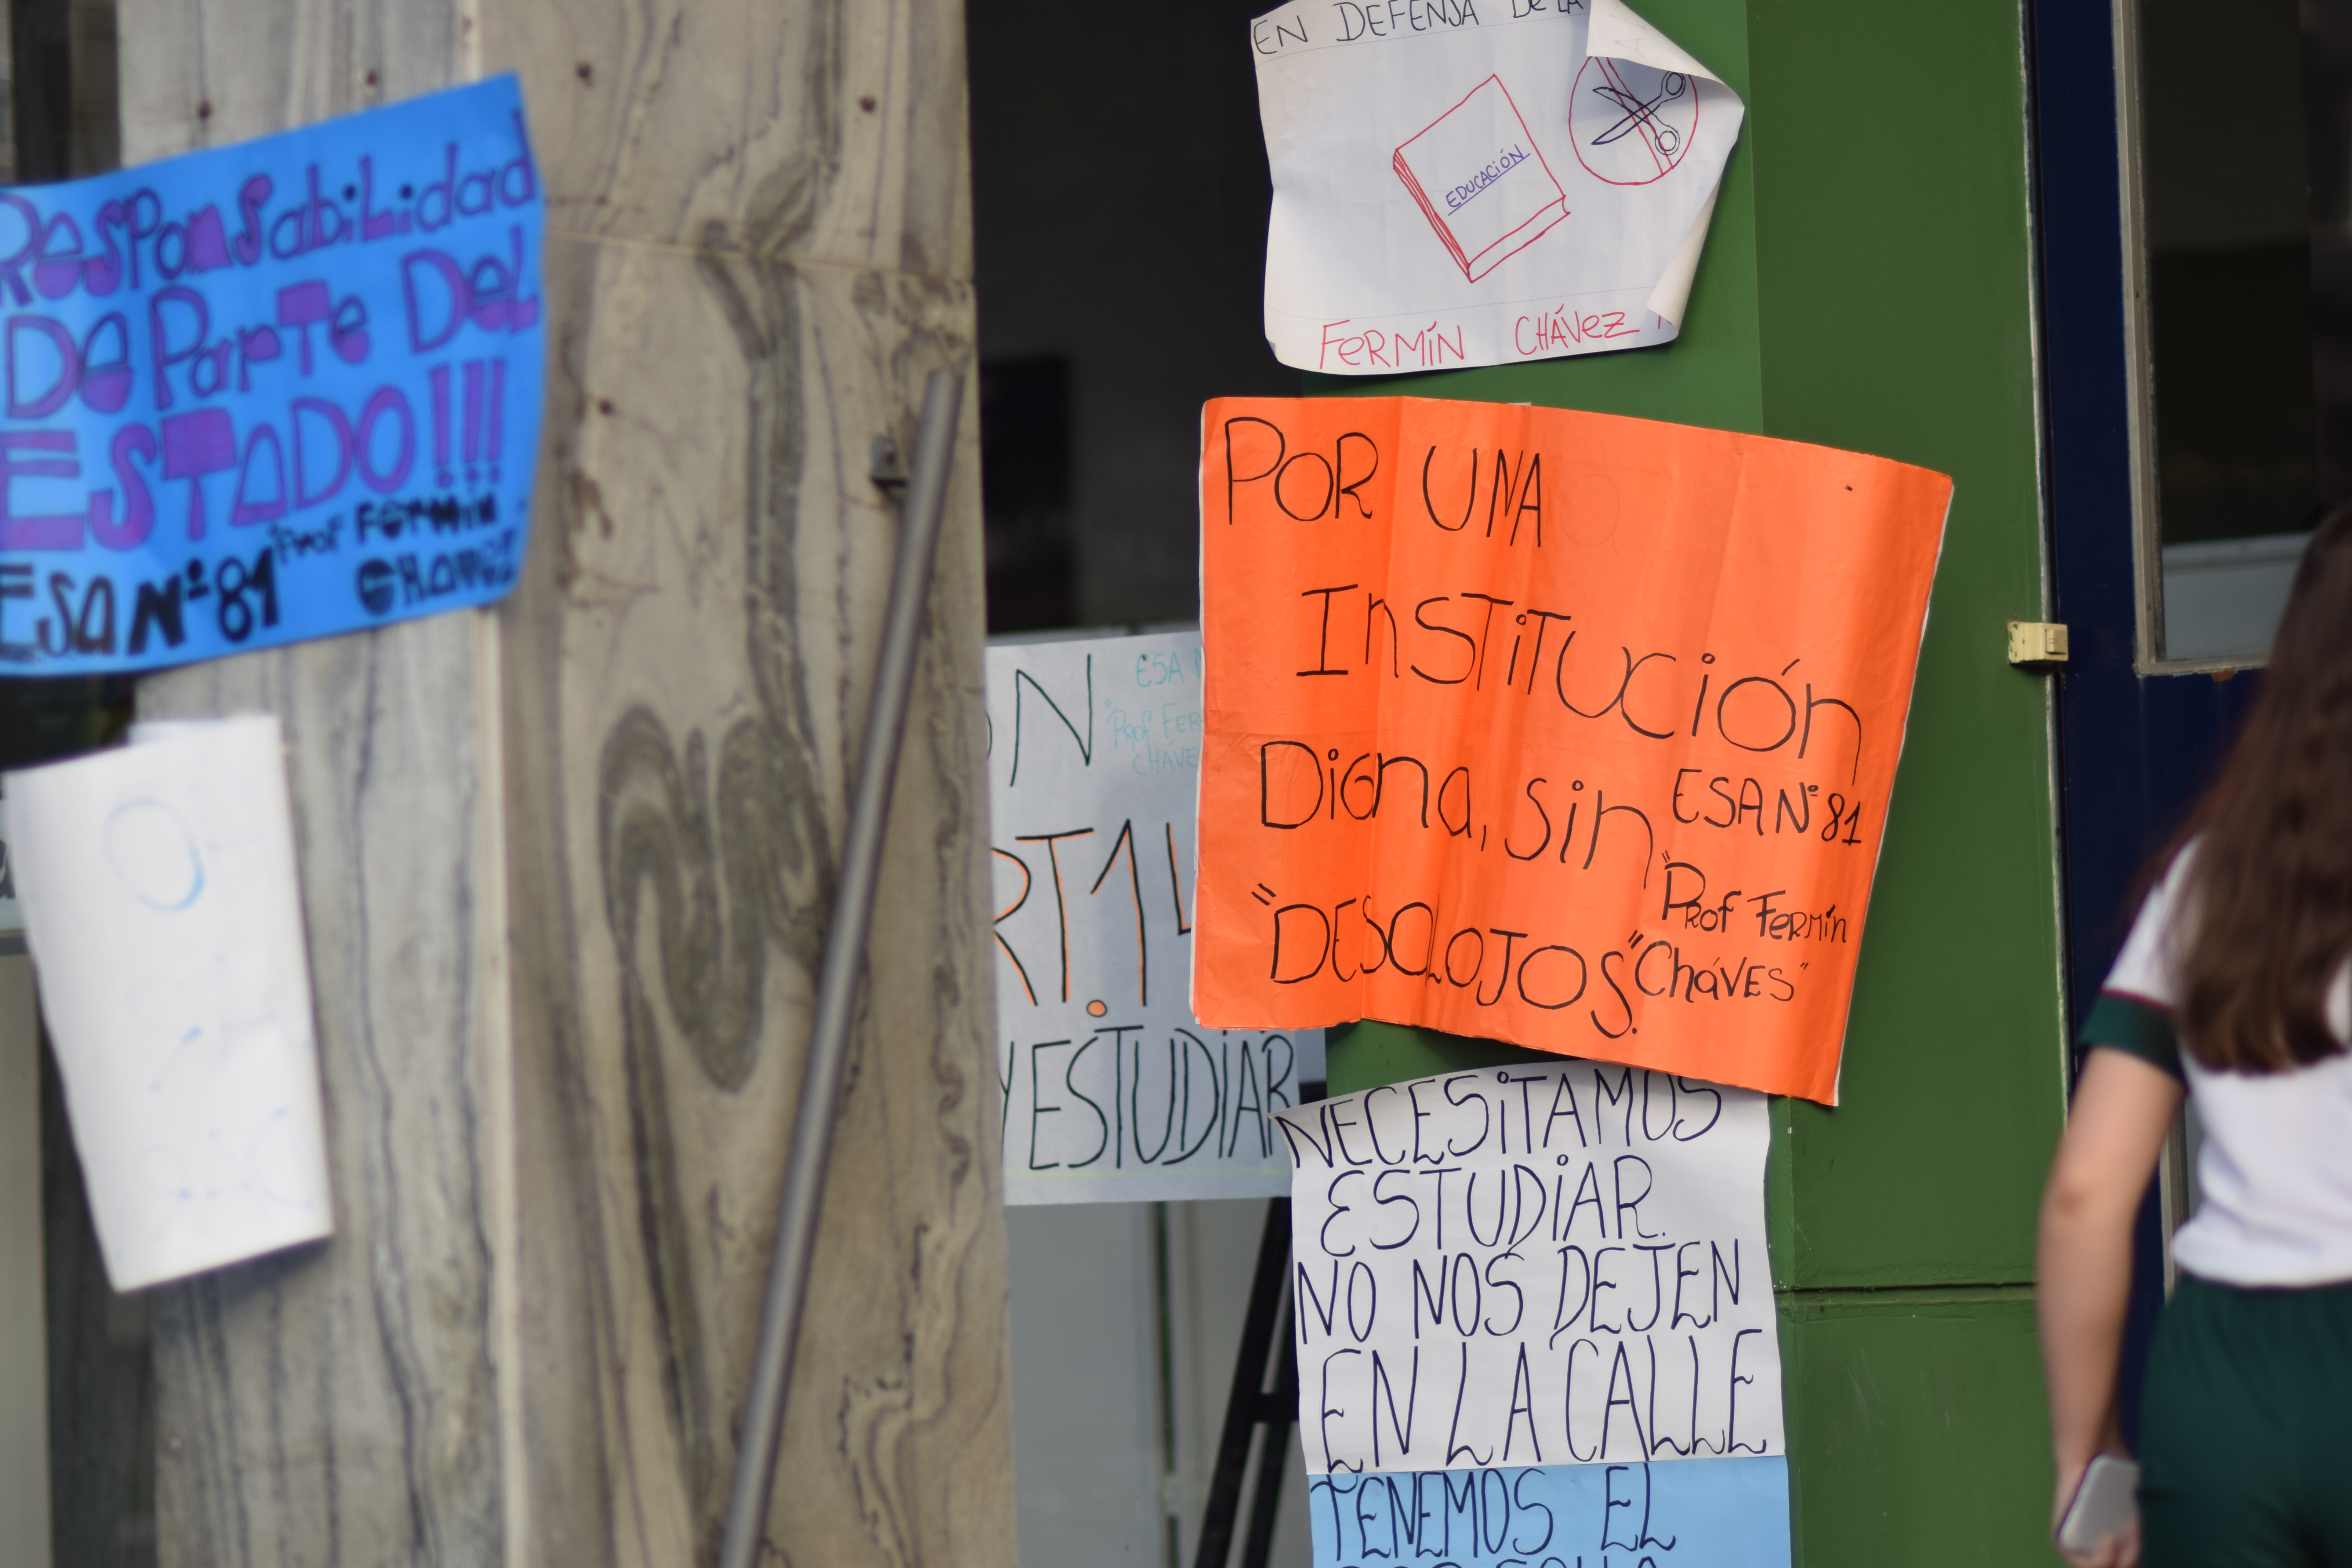 ResponsabiLidad
De ParTe DeL
ESTADO!!!
ESA Nº 81 "Prof Fermin
CHAVEZ
EN DEFENSA De LA
EDUCACIÓN
FeRMÍN CHÁVez
ESA
"Prof FER
CHÁVE
RT. 14
Y ESTUDIAR
POR UNA
InSTiTUCión
DiGna, Sin
"DESALOJOS".
ESA Nº 81
"Prof FeRMín
CháVES"
NECESiTAMOS
ESTUDiAR.
NO NOS DEJEN
EN LA CALLE
TENEMOS EL